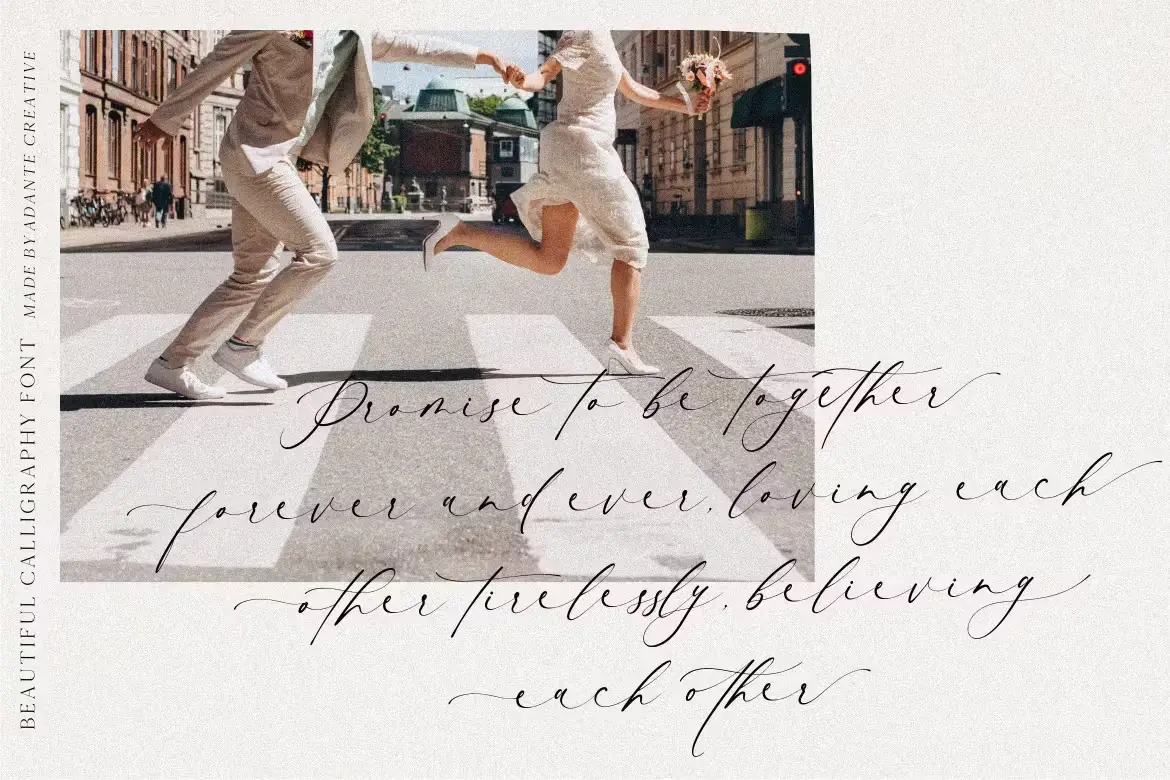 BEAUTIFUL CALLIGRAPHY FONT MADE BY ADANTE CREATIVE
Promise to be together
forever and ever, loving each
other tirelessly, believing
each other